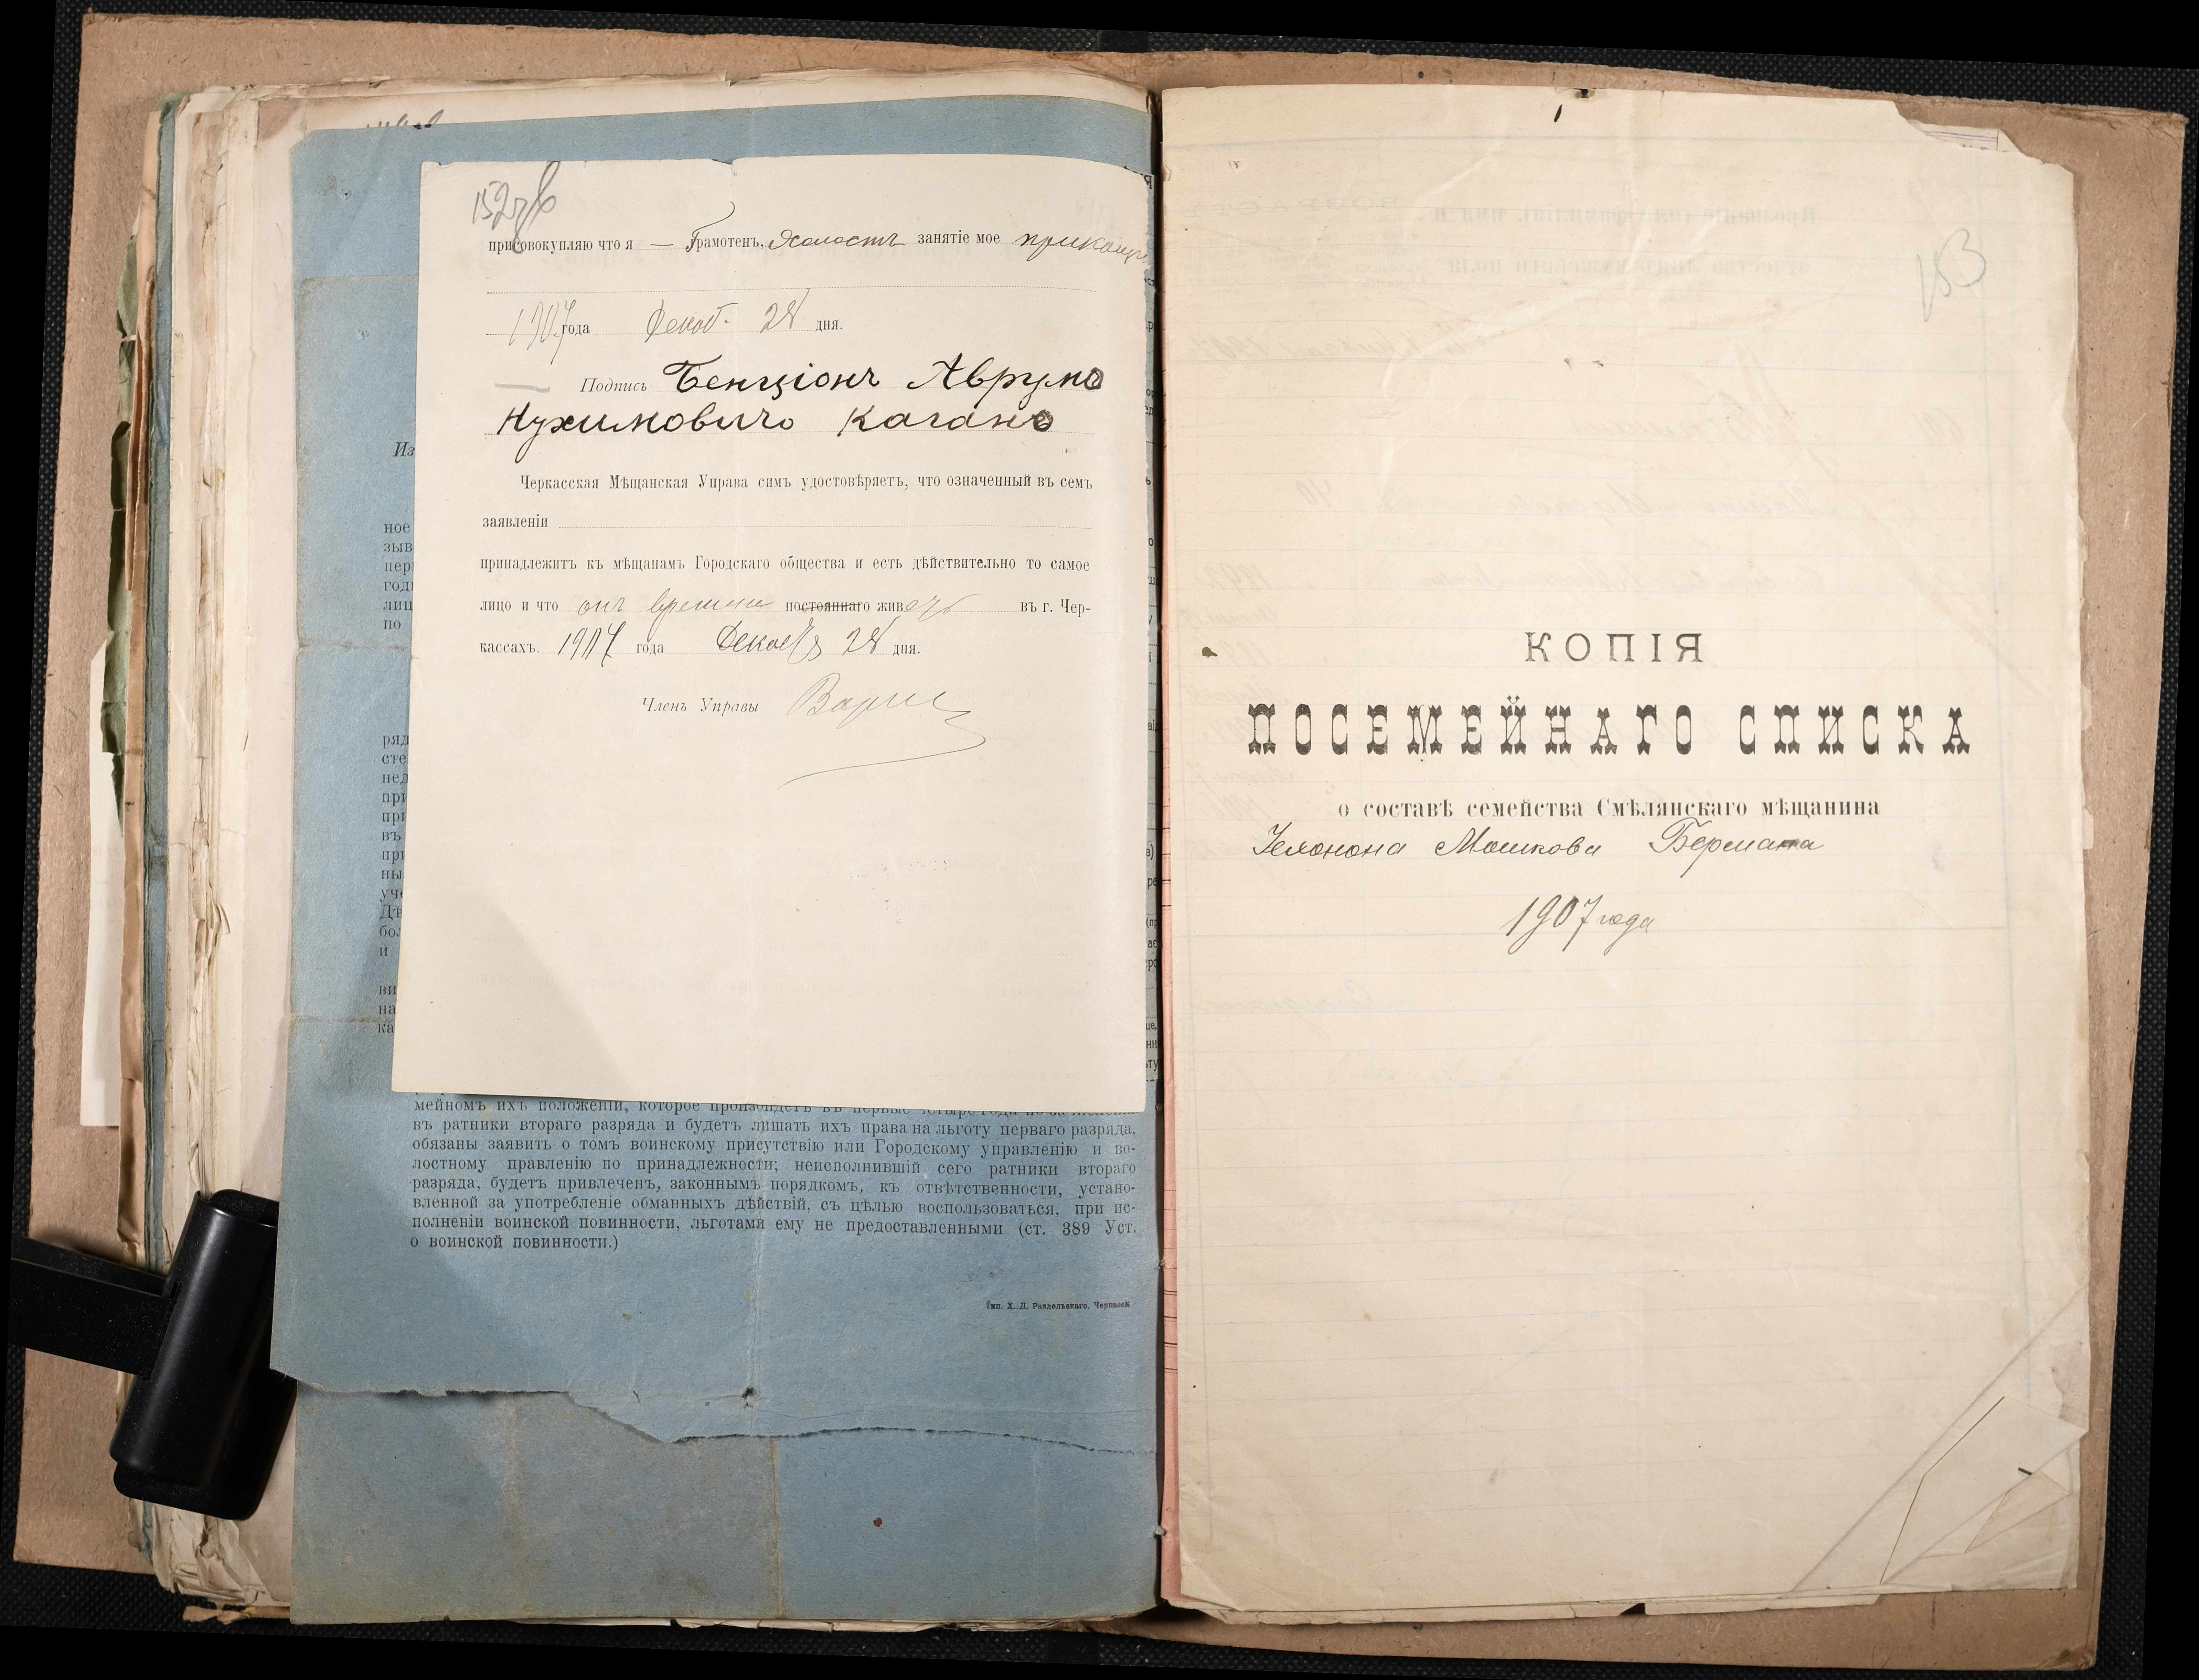 152 об
присовокупляю что я — Грамотенъ, Холостъ занятіе мое
1907 года Декаб. 28 дня.
Подпись Бенціонъ Аврумъ
Нухимовичъ Каганъ
Черкасская Мѣщанская Управа симъ удостовѣряетъ, что означенный въ семъ
заявленіи
принадлежитъ къ мѣщанамъ Городскаго общества и есть дѣйствительно то самое
лицо и что онъ времено постояннаго живетъ въ г. Чер-
кассахъ. 1907 года Декабря 28 дня.
Членъ Управы
Из
ное
зыв
пер
годи
лиц
по
ряд
сте
нед
при
при
въ
при
ны
уче
Дѣ
бол
и
ви
на
ка
мейномъ ихъ положеніи, которое произойдетъ въ первые четыре года по зачисленіи
въ ратники втораго разряда и будетъ лишать ихъ права на льготу перваго разряда,
обязаны заявить о томъ воинскому присутствію или Городскому управленію и во-
лостному правленію по принадлежности; неисполнившій сего ратники втораго
разряда, будетъ привлеченъ, законнымъ порядкомъ, къ отвѣтственности, устано-
вленной за употребленіе обманныхъ дѣйствій, съ цѣлью воспользоваться, при ис-
полненіи воинской повинности, льготами ему не предоставленными (ст. 389 Уст.
о воинской повинности.)
Тип. Х. Л. Раздольскаго, Черкассы
153
КОПІЯ
ПОСЕМЕЙНАГО СПИСКА
о составѣ семейства Смѣлянскаго мѣщанина
Мошкова Бермана
1907 года